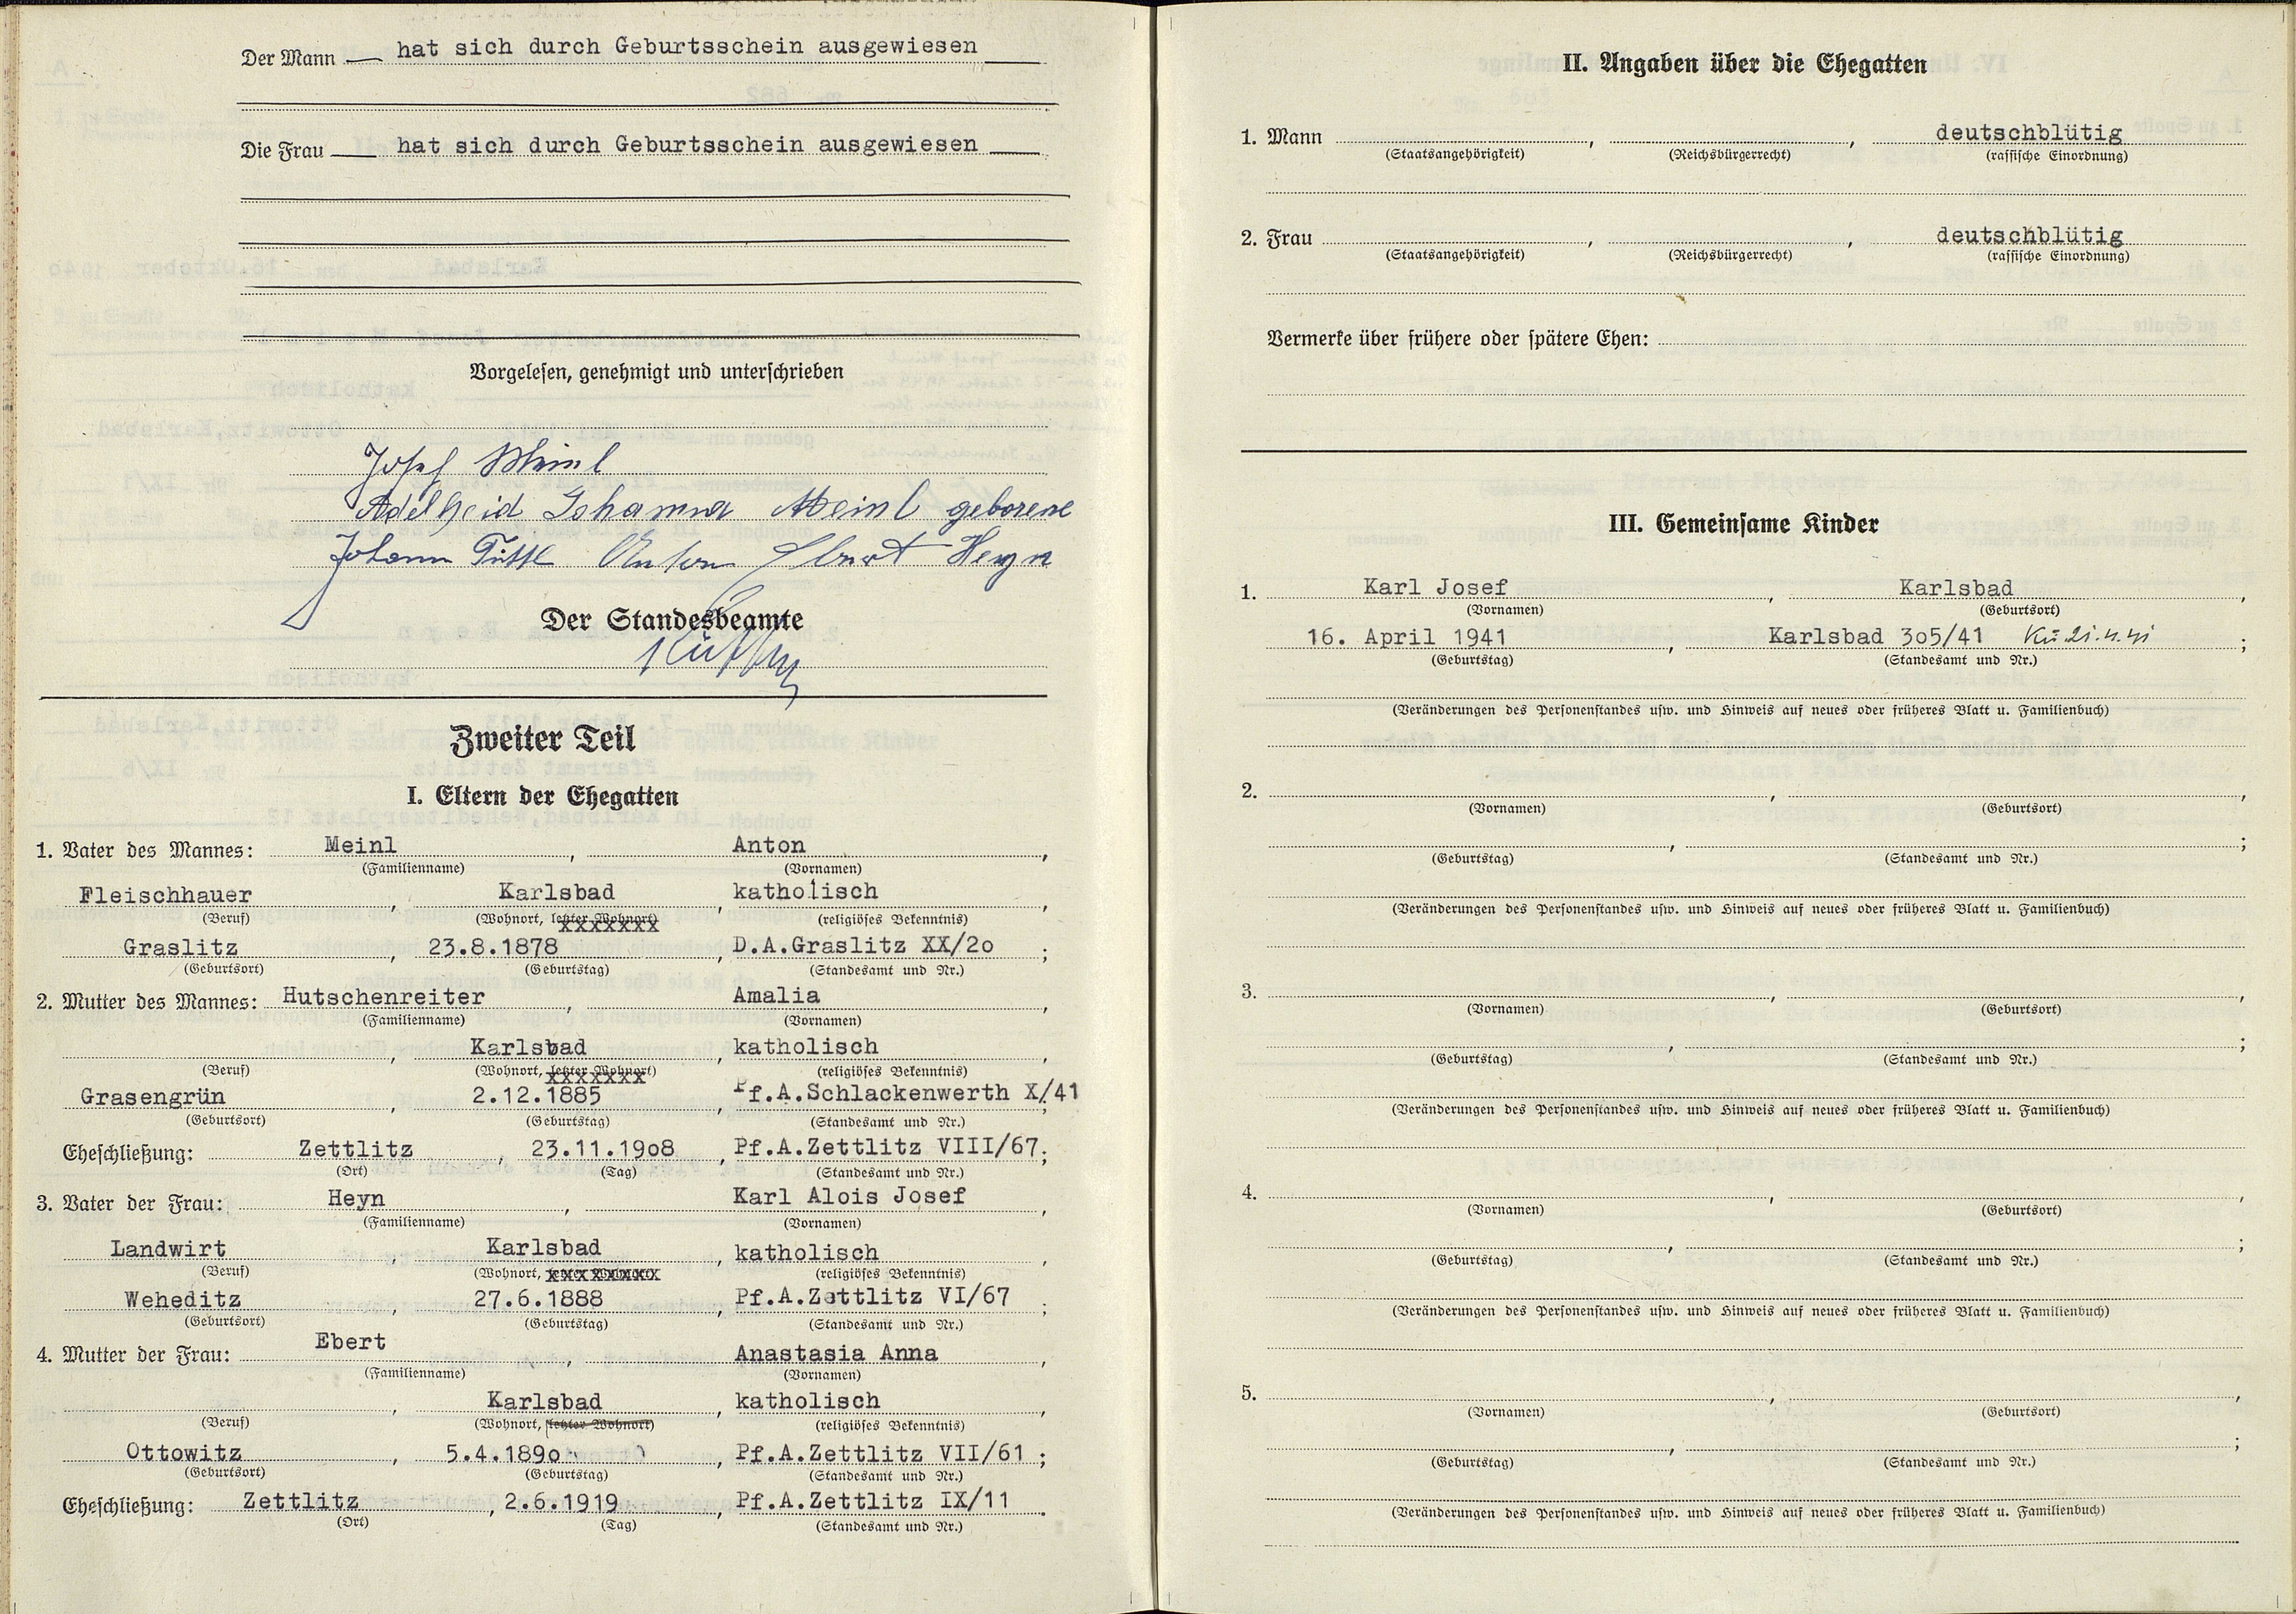 Der Mann hat sich durch Geburtsschein ausgewiesen
Die Frau hat sich durch Geburtsschein ausgewiesen
Vorgelesen, genehmigt und unterschrieben
Josef Meinl
Adelheid Johanna Meinl geborene
Johann Anton Ebert Heyn
Der Standesbeamte
Zweiter Teil
I. Eltern der Ehegatten
1. Vater des Mannes: Meinl, Anton,
(Familienname) (Vornamen)
Fleischhauer, Karlsbad, katholisch,
(Beruf) (Wohnort, letzter Wohnort) (religiöses Bekenntnis)
Graslitz, 23.8.1878, D.A.Graslitz XX/2o;
(Geburtsort) (Geburtstag) (Standesamt und Nr.)
2. Mutter des Mannes: Hutschenreiter, Amalia,
(Familienname) (Vornamen)
, Karlsbad, katholisch,
(Beruf) (Wohnort, letzter Wohnort) (religiöses Bekenntnis)
Grasengrün, 2.12.1885, Pf.A.Schlackenwerth X/41;
(Geburtsort) (Geburtstag) (Standesamt und Nr.)
Eheschließung: Zettlitz, 23.11.19o8, Pf.A.Zettlitz VIII/67;
(Ort) (Tag) (Standesamt und Nr.)
3. Vater der Frau: Heyn, Karl Alois Josef,
(Familienname) (Vornamen)
Landwirt, Karlsbad, katholisch,
(Beruf) (Wohnort, letzter Wohnort) (religiöses Bekenntnis)
Weheditz, 27.6.1888, Pf.A.Zettlitz VI/67;
(Geburtsort) (Geburtstag) (Standesamt und Nr.)
4. Mutter der Frau: Ebert, Anastasia Anna,
(Familienname) (Vornamen)
, Karlsbad, katholisch,
(Beruf) (Wohnort, letzter Wohnort) (religiöses Bekenntnis)
Ottowitz, 5.4.189o, Pf.A.Zettlitz VII/61;
(Geburtsort) (Geburtstag) (Standesamt und Nr.)
Eheschließung: Zettlitz, 2.6.1919, Pf.A.Zettlitz IX/11.
(Ort) (Tag) (Standesamt und Nr.)
II. Angaben über die Ehegatten
1. Mann , , deutschblütig
(Staatsangehörigkeit) (Reichsbürgerrecht) (rassische Einordnung)
2. Frau , , deutschblütig
(Staatsangehörigkeit) (Reichsbürgerrecht) (rassische Einordnung)
Vermerke über frühere oder spätere Ehen:
III. Gemeinsame Kinder
1. Karl Josef, Karlsbad,
(Vornamen) (Geburtsort)
16. April 1941, Karlsbad 3o5/41 Kü 21.4.41;
(Geburtstag) (Standesamt und Nr.)
(Veränderungen des Personenstandes usw. und Hinweis auf neues oder früheres Blatt u. Familienbuch)
2. , ,
(Vornamen) (Geburtsort)
, ;
(Geburtstag) (Standesamt und Nr.)
(Veränderungen des Personenstandes usw. und Hinweis auf neues oder früheres Blatt u. Familienbuch)
3. , ,
(Vornamen) (Geburtsort)
, ;
(Geburtstag) (Standesamt und Nr.)
(Veränderungen des Personenstandes usw. und Hinweis auf neues oder früheres Blatt u. Familienbuch)
4. , ,
(Vornamen) (Geburtsort)
, ;
(Geburtstag) (Standesamt und Nr.)
(Veränderungen des Personenstandes usw. und Hinweis auf neues oder früheres Blatt u. Familienbuch)
5. , ,
(Vornamen) (Geburtsort)
, ;
(Geburtstag) (Standesamt und Nr.)
(Veränderungen des Personenstandes usw. und Hinweis auf neues oder früheres Blatt u. Familienbuch)